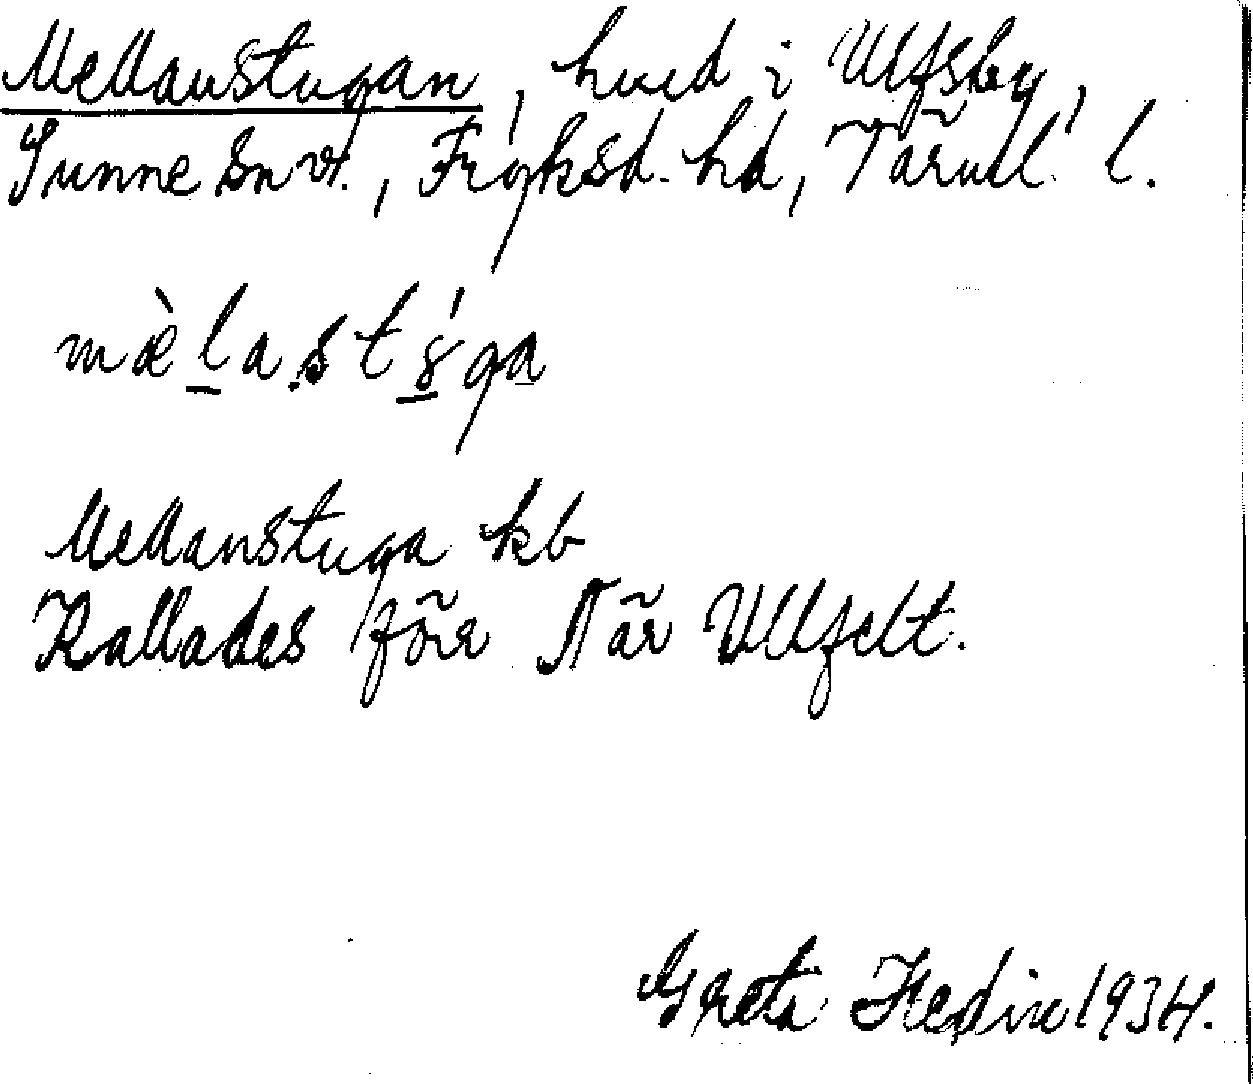 Mellanstugan, hmd i Ulfsby,
Sunne sn vt., Fryksd. hd, Värml. l.
mæ̀lastǵa
Mellanstuga kb
Kallades förr När Ullfelt.
Greta Hedin 1934.